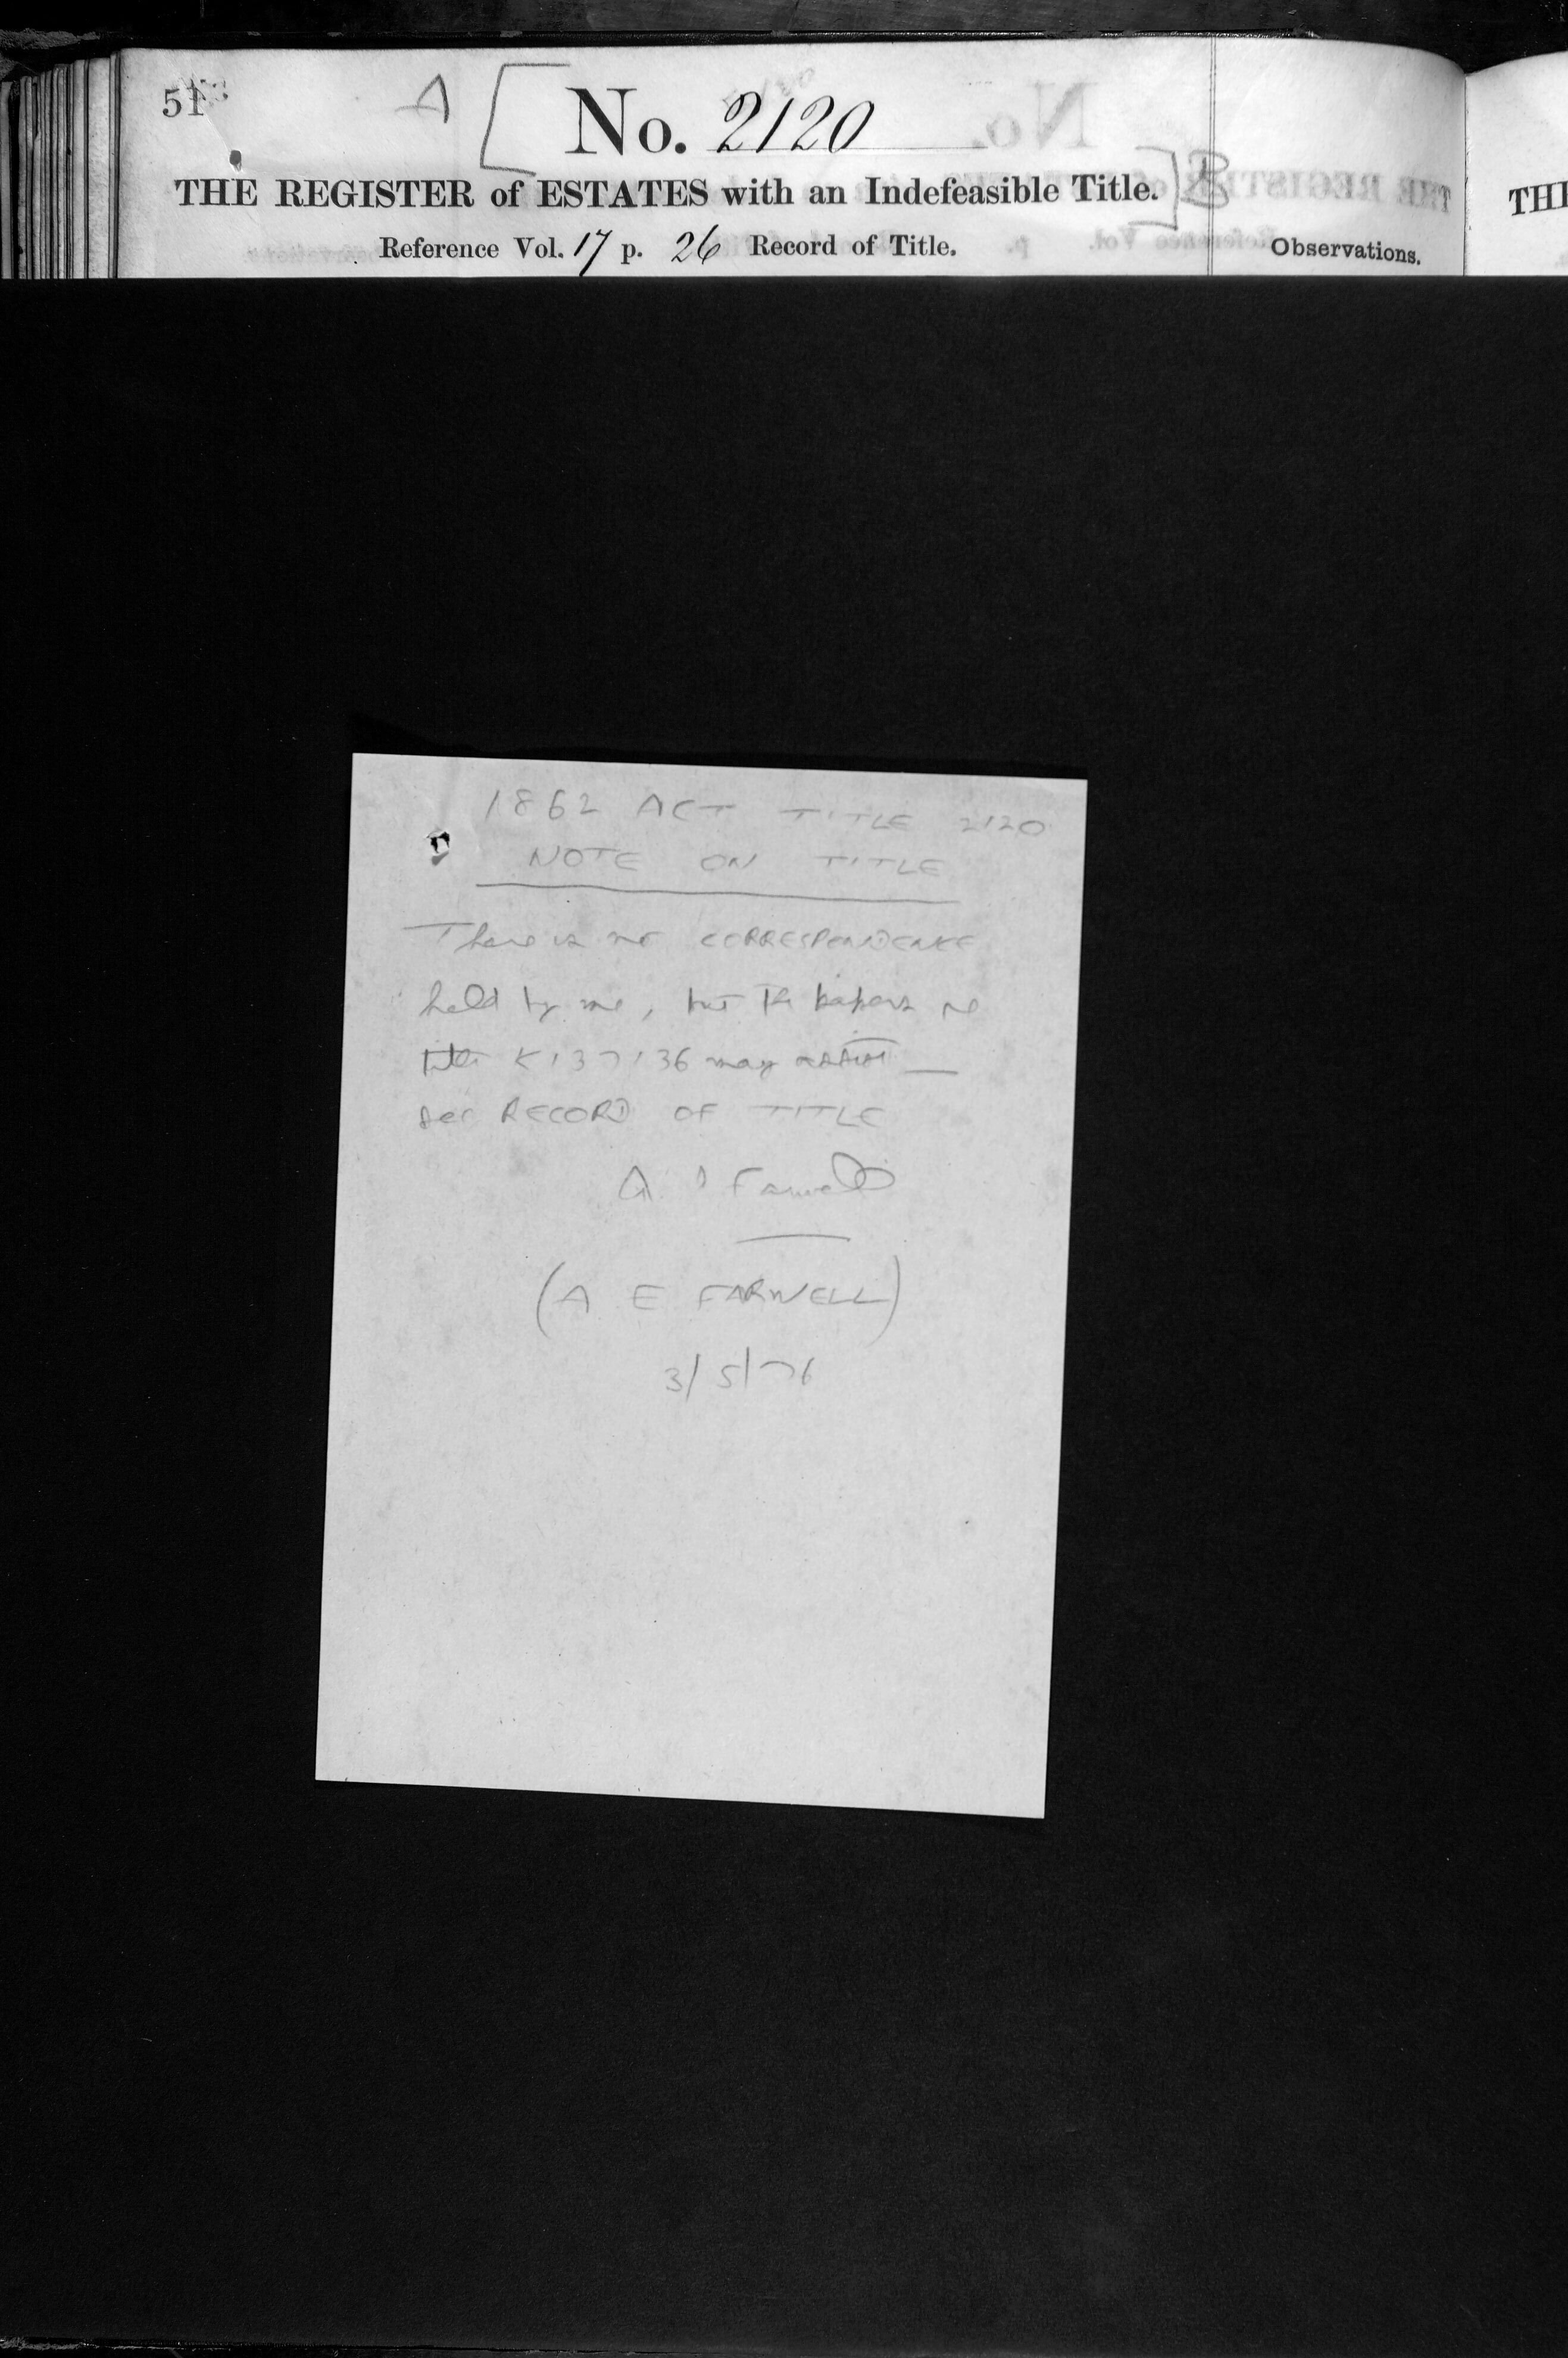 51
A [ No. 2120
THE REGISTER of ESTATES with an Indefeasible Title. ] B
Reference Vol. 17 p. 26 Record of Title.
Observations.
THE
1862 ACT TITLE 2120
NOTE ON TITLE
There is no CORRESPONDENCE
held by me, but the papers re
title K137136 may assist —
see RECORD OF TITLE
A E Farwell
(A E FARWELL)
3/5/76